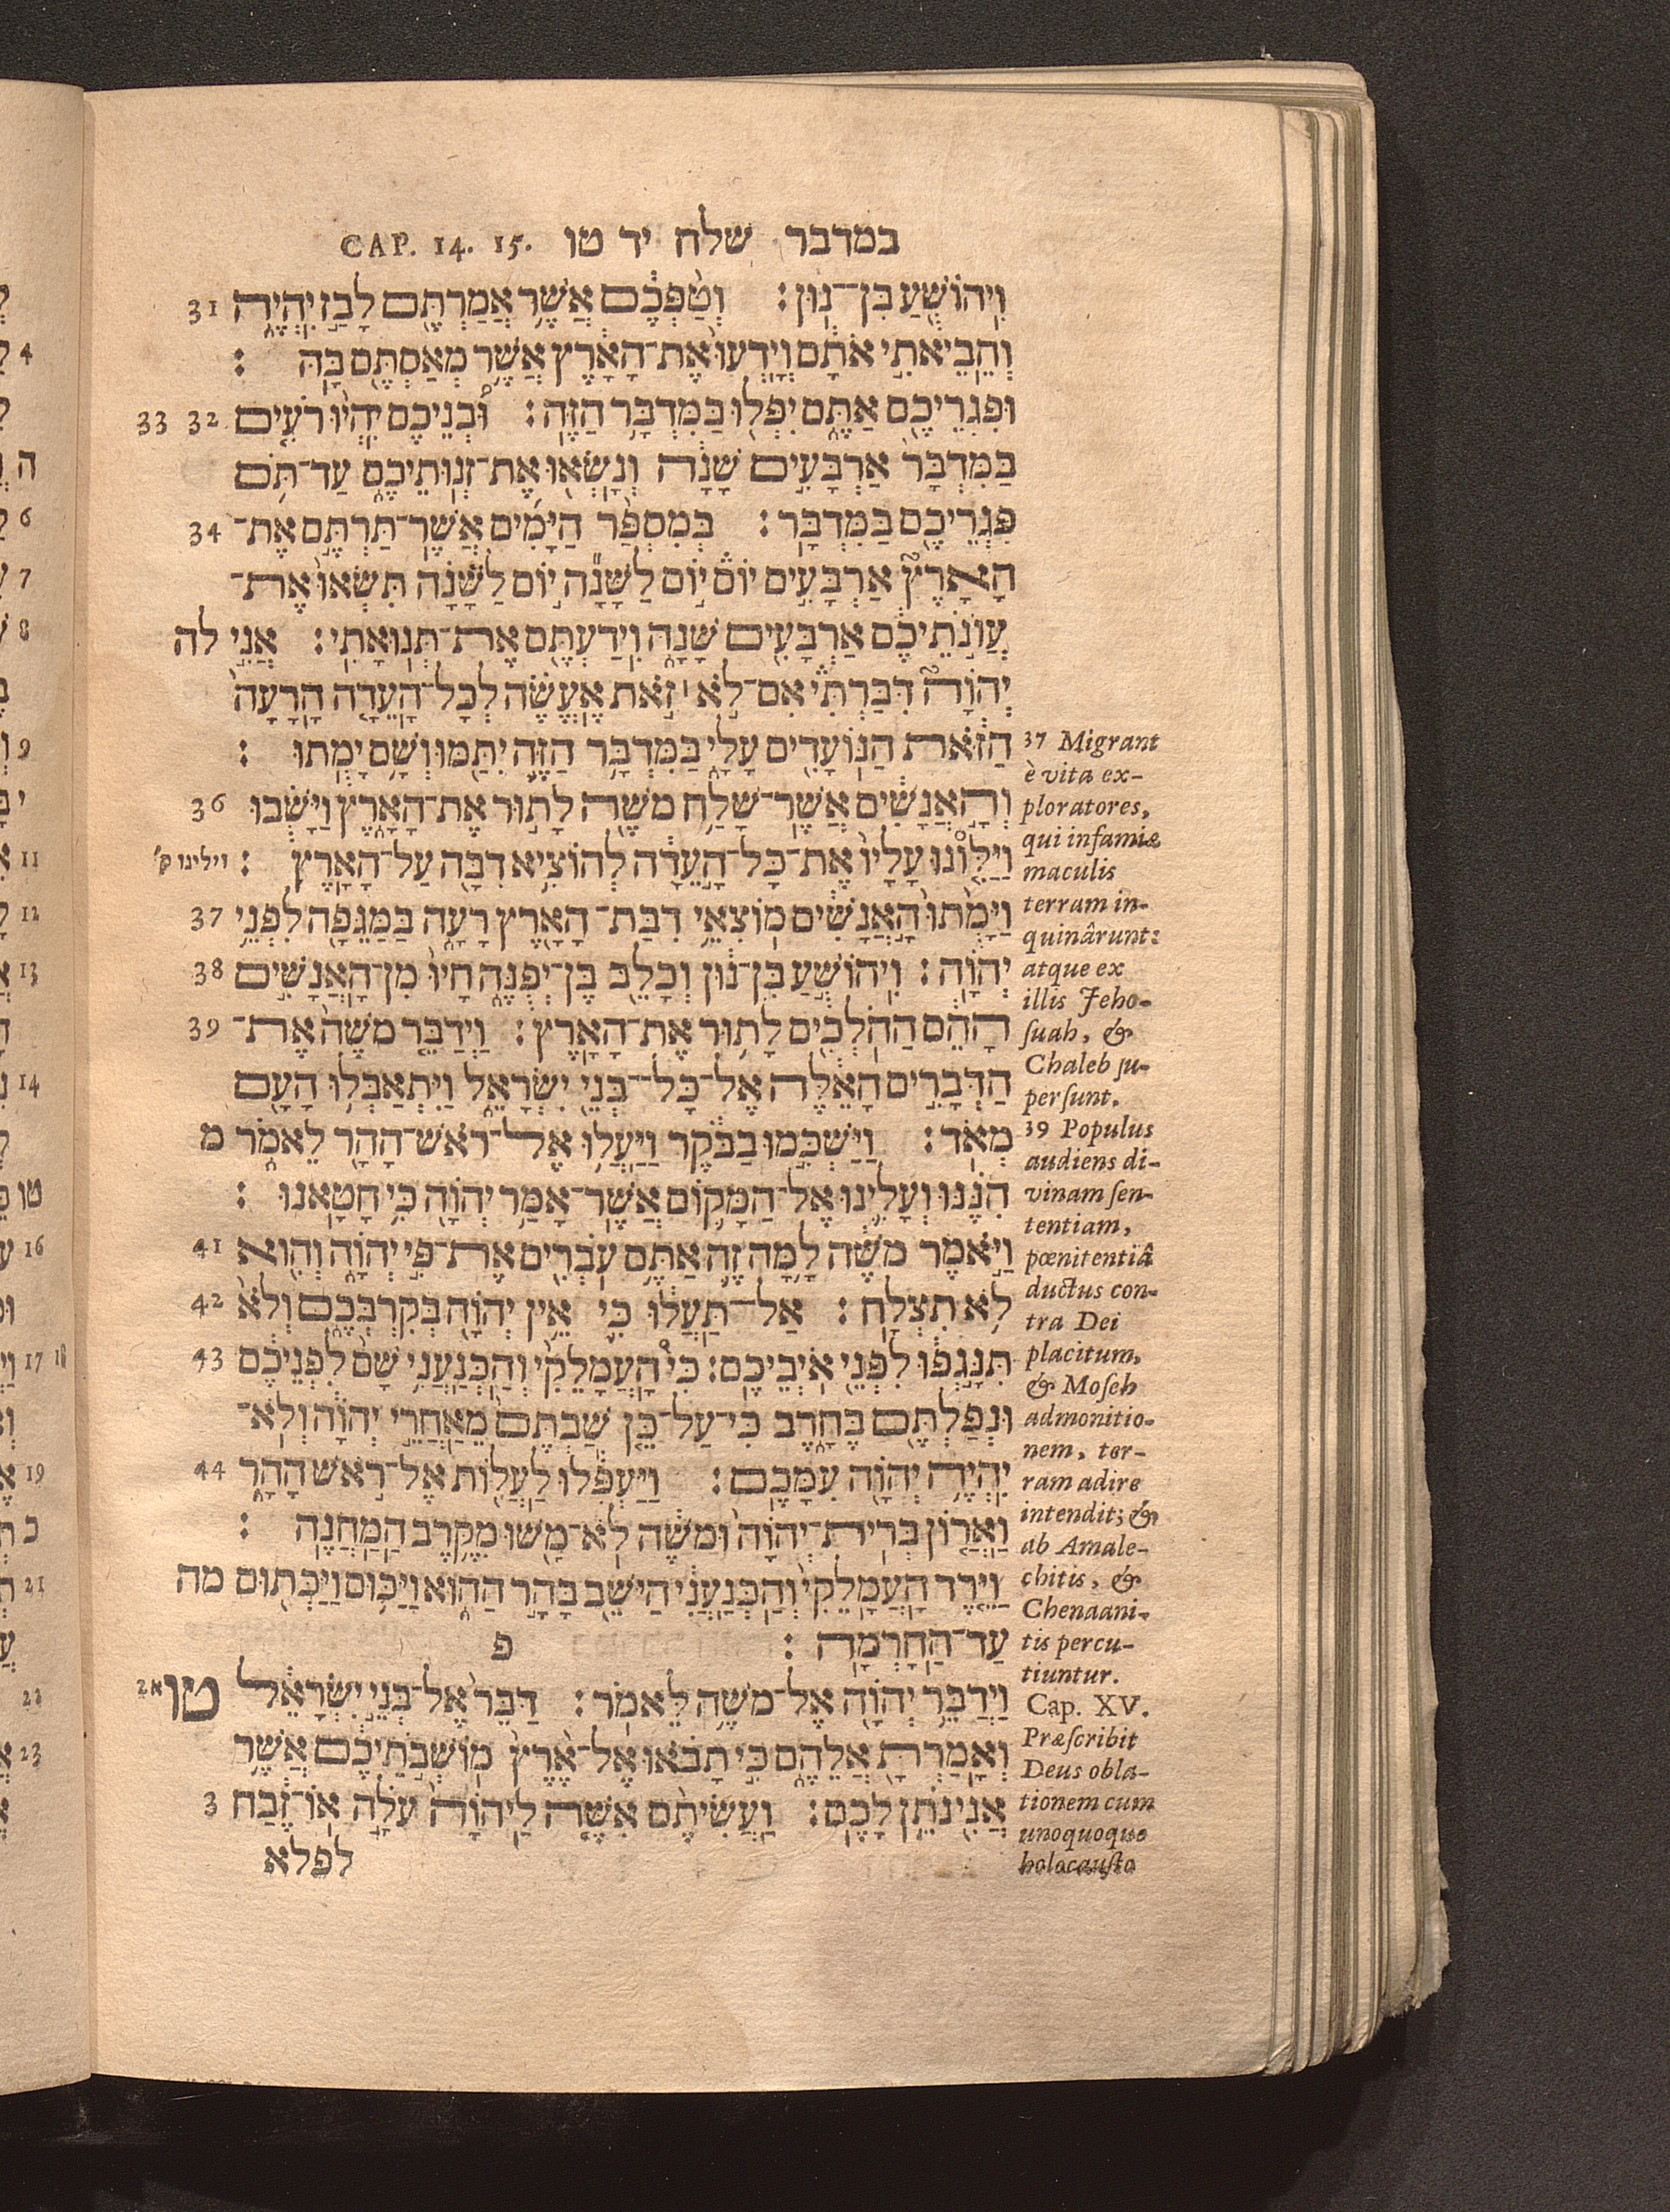 במדבר שלח יד טו CAP. 14. 15.
וִיהוֹשֻׁעַ בִּן־נוּן׃ וְטַפְּכֶם אֲשֶׁר אֲמַרְתֶּם לָבַז יִהְיֶה 31
וְהֵבֵיאתִי אֹתָם וְיָדְעוּ אֶת־הָאָרֶץ אֲשֶׁר מְאַסְתֶּם בָּהּ ׃
וּפִגְרֵיכֶם אַתֶּם יִפְּלוּ בַּמִּדְבָּר הַזֶּה׃ וּבְנֵיכֶם יִהְיוּ רֹעִים 32 33
בַּמִּדְבָּר אַרְבָּעִים שָׁנָה וְנָשְׂאוּ אֶת־זְנוּתֵיכֶם עַד־תֹּם
פִּגְרֵיכֶם בַּמִּדְבָּר׃ בְּמִסְפַּר הַיָּמִים אֲשֶׁר־תַּרְתֶּם אֶת־ 34
הָאָרֶץ אַרְבָּעִים יוֹם יוֹם לַשָּׁנָה יוֹם לַשָּׁנָה תִּשְׂאוּ אֶת־
עֲוֹנֹתֵיכֶם אַרְבָּעִים שָׁנָה וִידַעְתֶּם אֶת־תְּנוּאָתִי׃ אֲנִי לה
יְהוָֹה דִּבַּרְתִּי אִם־לֹא ׀ זֹאת אֶעֱשֶׂה לְכָל־הָעֵדָה הָרָעָה
הַזֹּאת הַנּוֹעָדִים עָלָי בַּמִּדְבָּר הַזֶּה יִתַּמּוּ וְשָׁם יָמֻתוּ ׃
וְהָאֲנָשִׁים אֲשֶׁר־שָׁלַח משֶׁה לָתוּר אֶת־הָאָרֶץ וַיָּשֻׁבוּ 36
וַיַּלִּונוּ עָלָיו אֶת־כָּל־הָעֵדָה לְהוֹצִיא דִבָּה עַל־הָאָרֶץ ׃ וילינו ק׳
וַיָּמֻתוּ הָאֲנָשִׁים מוֹצִאֵי דִבַּת־הָאָרֶץ רָעָה בַּמַּגֵּפָה לִפְנֵי 37
יְהוָֹה׃ וִיהוֹשֻׁעַ בִּן־נוּן וְכָלֵב בֶּן־יְפֻנֶּה חָיוּ מִן־הָאֲנָשִׁים 38
הָהֵם הַהֹלְכִים לָתוּר אֶת־הָאָרֶץ׃ וַיְדַבֵּר משֶׁה אֶת־ 39
הַדְּבָרִים הָאֵלֶּה אֶל־כָּל־בְּנֵי יִשְׂרָאֵל וַיִּתְאַבְּלוּ הָעָם
מְאֹד׃ וַיַּשְׁכִּמוּ בַבֹּקֶר וַיַּעֲלוּ אֶל־רֹאשׁ־הָהָר לֵאמֹר מ
הִנֶּנּוּ וְעָלִינוּ אֶל־הַמָּקוֹם אֲשֶׁר־אָמַר יְהוָֹה כִּי חָטָאנוּ ׃
וַיֹּאמֶר משֶׁה לָמָּה זֶּה אַתֶּם עֹבְרִים אֶת־פִּי יְהוָֹה וְהִוא 41
לֹא תִצְלָח׃ אַל־תַּעֲלוּ כִּי אֵין יְהוָֹה בְּקִרְבְּכֶם וְלֹא 42
תִּנָּגְפוּ לִפְנֵי אֹיְבֵיכֶם׃ כִּי הָעֲמָלֵקִי וְהַכְּנַעֲנִי שָׁם לִפְנֵיכֶם 43
וּנְפַלְתֶּם בֶּחָרֶב כִּי־עַל־כֵּן שַׁבְתֶּם מֵאַחֲרֵי יְהוָֹה וְלֹא־
יִהְיֶה יְהוָֹה עִמָּכֶם׃ וַיַּעְפִּלוּ לַעֲלוֹת אֶל־רֹאשׁ הָהָר 44
וַאֲרוֹן בְּרִית־יְהוָֹה וּמשֶׁה לֹא־מָשׁוּ מִקֶּרֶב הַמַּחֲנֶה ׃
וַיֵּרֶד הָעֲמָלֵקִי וְהַכְּנַעֲנִי הַיּשֵׁב בָּהָר הַהוּא וַיַּכּוּם וַיַּכְּתוּם מה
עַד־הַחָרְמָה ׃ פ
וַיְדַבֵּר יְהוָֹה אֶל־משֶׁה לֵּאמֹר׃ דַּבֵּר אֶל־בְּנֵי יִשְׂרָאֵל טו 2א
וְאָמַרְתָּ אֲלֵהֶם כִּי תָבֹאוּ אֶל־אֶרֶץ מוֹשְׁבֹתֵיכֶם אֲשֶׁר
אֲנִי נֹתֵן לָכֶם׃ וַעֲשִׂיתֶם אִשֶּׁה לַיהוָֹה עֹלָה אוֹ־זֶבַח 3
לפלא
37 Migrant
è vita ex-
ploratores,
qui infamiæ
maculis
terram in-
quinârunt:
atque ex
illis Jeho-
ſuah, &
Chaleb ſu-
perſunt.
39 Populus
audiens di-
vinam ſen-
tentiam,
pœnitentiâ
ductus con-
tra Dei
placitum,
& Moſeh
admonitio-
nem, ter-
ram adire
intendit; &
ab Amale-
chitis, &
Chenaani-
tis percu-
tiuntur.
Cap. XV.
Præſcribit
Deus obla-
tionem cum
unoquoque
holocauſto
4
ה
6
7
8
9
י
11
12
13
14
טו
16
17 18
19
כ
21
22
23